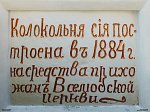 Колокольня сія пос-
троена въ 1884 г.
на средства прихо-
жанъ Вселовской
Церкви